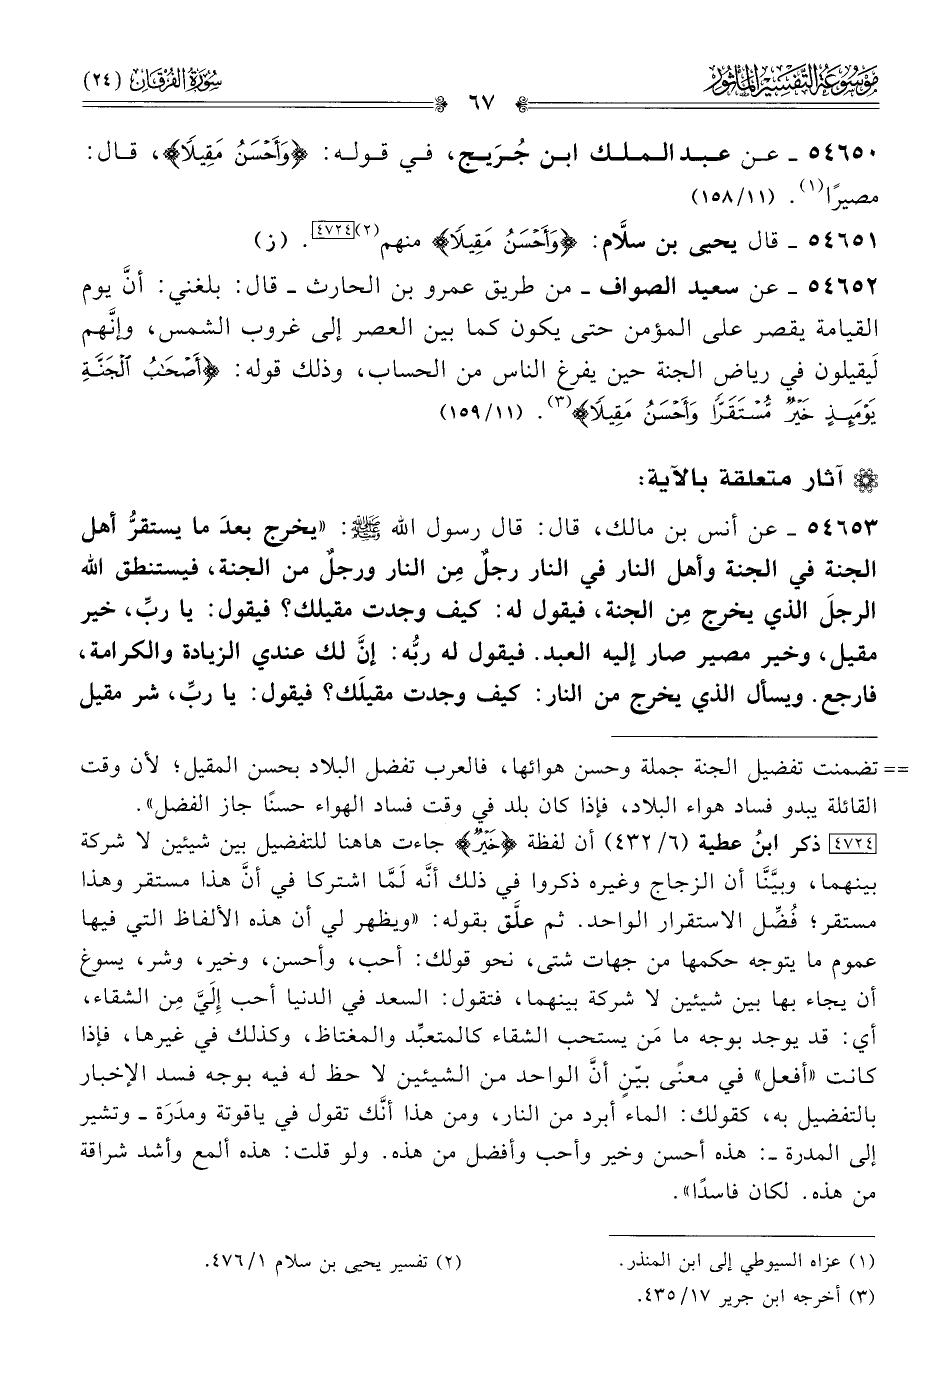 مَوْسُوعَة التَّفْسِير المَأْثُور
سُورَةُ الفُرْقَان (٢٤)
٦٧
٥٤٦٥٠ ـ عـن عبـد الـمـلـك ابـن جُـرَيـج، فـي قـولـه: ﴿وَأَحْسَنُ مَقِيلًا﴾، قـال:
مصيرًا(١). (١١/ ١٥٨)
٥٤٦٥١ ـ قال يحيى بن سلَّام: ﴿وَأَحْسَنُ مَقِيلًا﴾ منهم(٢)[٤٧٢٤]. (ز)
٥٤٦٥٢ ـ عن سعيد الصواف ـ من طريق عمرو بن الحارث ـ قال: بلغني: أنَّ يوم
القيامة يقصر على المؤمن حتى يكون كما بين العصر إلى غروب الشمس، وإنَّهم
لَيقيلون في رياض الجنة حين يفرغ الناس من الحساب، وذلك قوله: ﴿أَصْحَٰبُ ٱلْجَنَّةِ
يَوْمَئِذٍ خَيْرٌ مُّسْتَقَرًّا وَأَحْسَنُ مَقِيلًا﴾(٣). (١١/ ١٥٩)
آثار متعلقة بالآية:
٥٤٦٥٣ ـ عن أنس بن مالك، قال: قال رسول الله ﷺ: «يخرج بعدَ ما يستقرُّ أهل
الجنة في الجنة وأهل النار في النار رجلٌ مِن النار ورجلٌ من الجنة، فيستنطق الله
الرجلَ الذي يخرج مِن الجنة، فيقول له: كيف وجدت مقيلك؟ فيقول: يا ربِّ، خير
مقيل، وخير مصير صار إليه العبد. فيقول له ربُّه: إنَّ لك عندي الزيادة والكرامة،
فارجع. ويسأل الذي يخرج من النار: كيف وجدت مقيلَك؟ فيقول: يا ربِّ، شر مقيل
== تضمنت تفضيل الجنة جملة وحسن هوائها، فالعرب تفضل البلاد بحسن المقيل؛ لأن وقت
القائلة يبدو فساد هواء البلاد، فإذا كان بلد في وقت فساد الهواء حسنًا جاز الفضل».
[٤٧٢٤] ذكر ابنُ عطية (٦/ ٤٣٢) أن لفظة ﴿خَيْرٌ﴾ جاءت هاهنا للتفضيل بين شيئين لا شركة
بينهما، وبيَّنَّا أن الزجاج وغيره ذكروا في ذلك أنَّه لَمَّا اشتركا في أنَّ هذا مستقر وهذا
مستقر؛ فُضِّل الاستقرار الواحد. ثم علَّق بقوله: «ويظهر لي أن هذه الألفاظ التي فيها
عموم ما يتوجه حكمها من جهات شتى، نحو قولك: أحب، وأحسن، وخير، وشر، يسوغ
أن يجاء بها بين شيئين لا شركة بينهما، فتقول: السعد في الدنيا أحب إِلَيَّ مِن الشقاء،
أي: قد يوجد بوجه ما مَن يستحب الشقاء كالمتعبِّد والمغتاظ، وكذلك في غيرها، فإذا
كانت «أفعل» في معنًى بيّنٍ أنَّ الواحد من الشيئين لا حظ له فيه بوجه فسد الإخبار
بالتفضيل به، كقولك: الماء أبرد من النار، ومن هذا أنَّك تقول في ياقوتة ومدَرَة ـ وتشير
إلى المدرة ـ: هذه أحسن وخير وأحب وأفضل من هذه. ولو قلت: هذه ألمع وأشد شراقة
من هذه. لكان فاسدًا».
(١) عزاه السيوطي إلى ابن المنذر.
(٢) تفسير يحيى بن سلام ١/ ٤٧٦.
(٣) أخرجه ابن جرير ١٧/ ٤٣٥.